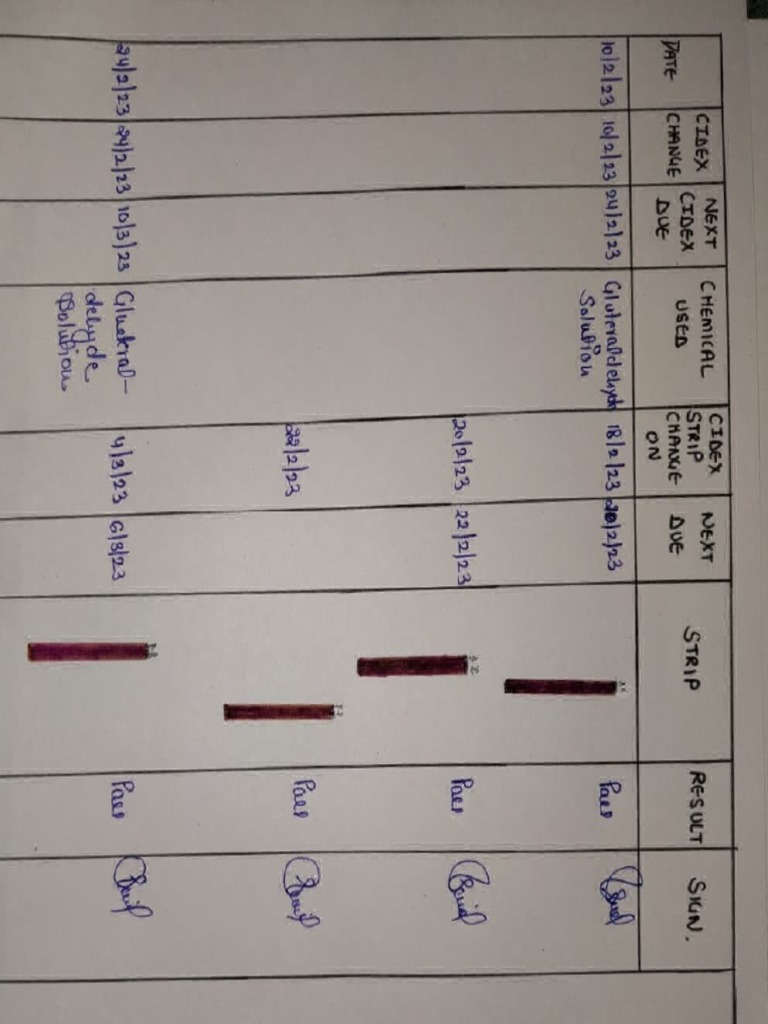 DATE
CIDEX CHANGE
NEXT CIDEX DUE
CHEMICAL USED
CIDEX STRIP CHANGE ON
NEXT DUE
STRIP
RESULT
SIGN.
10/2/23 10/2/23 24/2/23 Gluteraldehyde 18/2/23 20/2/23 Pass
Solution
20/2/23 22/2/23 Pass
22/2/23 Pass
24/2/23 24/2/23 10/3/23 Gluteral- 4/3/23 6/3/23 Pass
dehyde
Solution